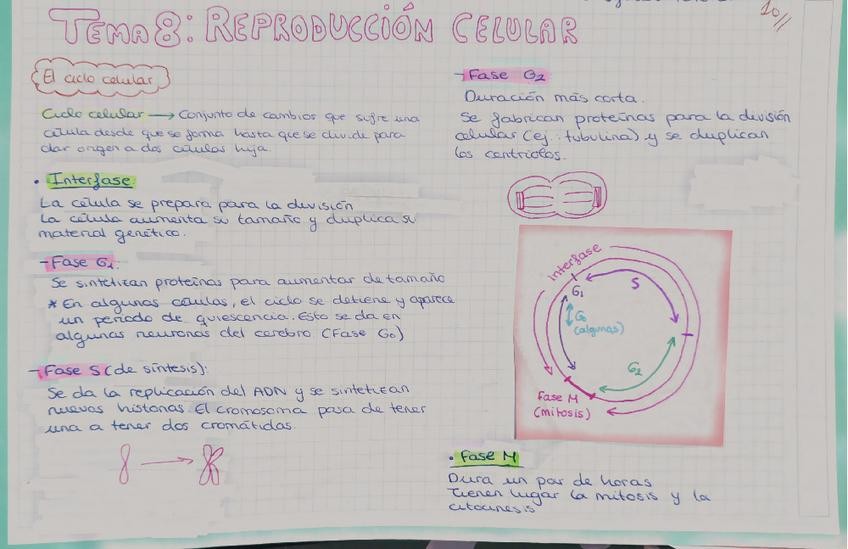 10//
TEMA 8: REPRODUCCIÓN CELULAR
El ciclo celular
Ciclo celular → Conjunto de cambios que sufre una
célula desde que se forma hasta que se divide para
dar origen a dos células hija.
• Interfase
La célula se prepara para la división
La célula aumenta su tamaño y duplica su
material genético.
- Fase G1.
Se sintetizan proteínas para aumentar de tamaño
* En algunas células, el ciclo se detiene y aparece
un periodo de quiescencia. Esto se da en
algunas neuronas del cerebro (Fase G0)
- Fase S (de síntesis):
Se da la replicación del ADN y se sintetizan
nuevas histonas. El cromosoma pasa de tener
una a tener dos cromátidas.
- Fase G2
Duración más corta.
Se fabrican proteínas para la división
celular (ej: tubulina) y se duplican
los centriolos.
Interfase
S
G1
G0
(algunas)
G2
Fase M
(mitosis)
• Fase M
Dura un par de horas
Tienen lugar la mitosis y la
citocinesis